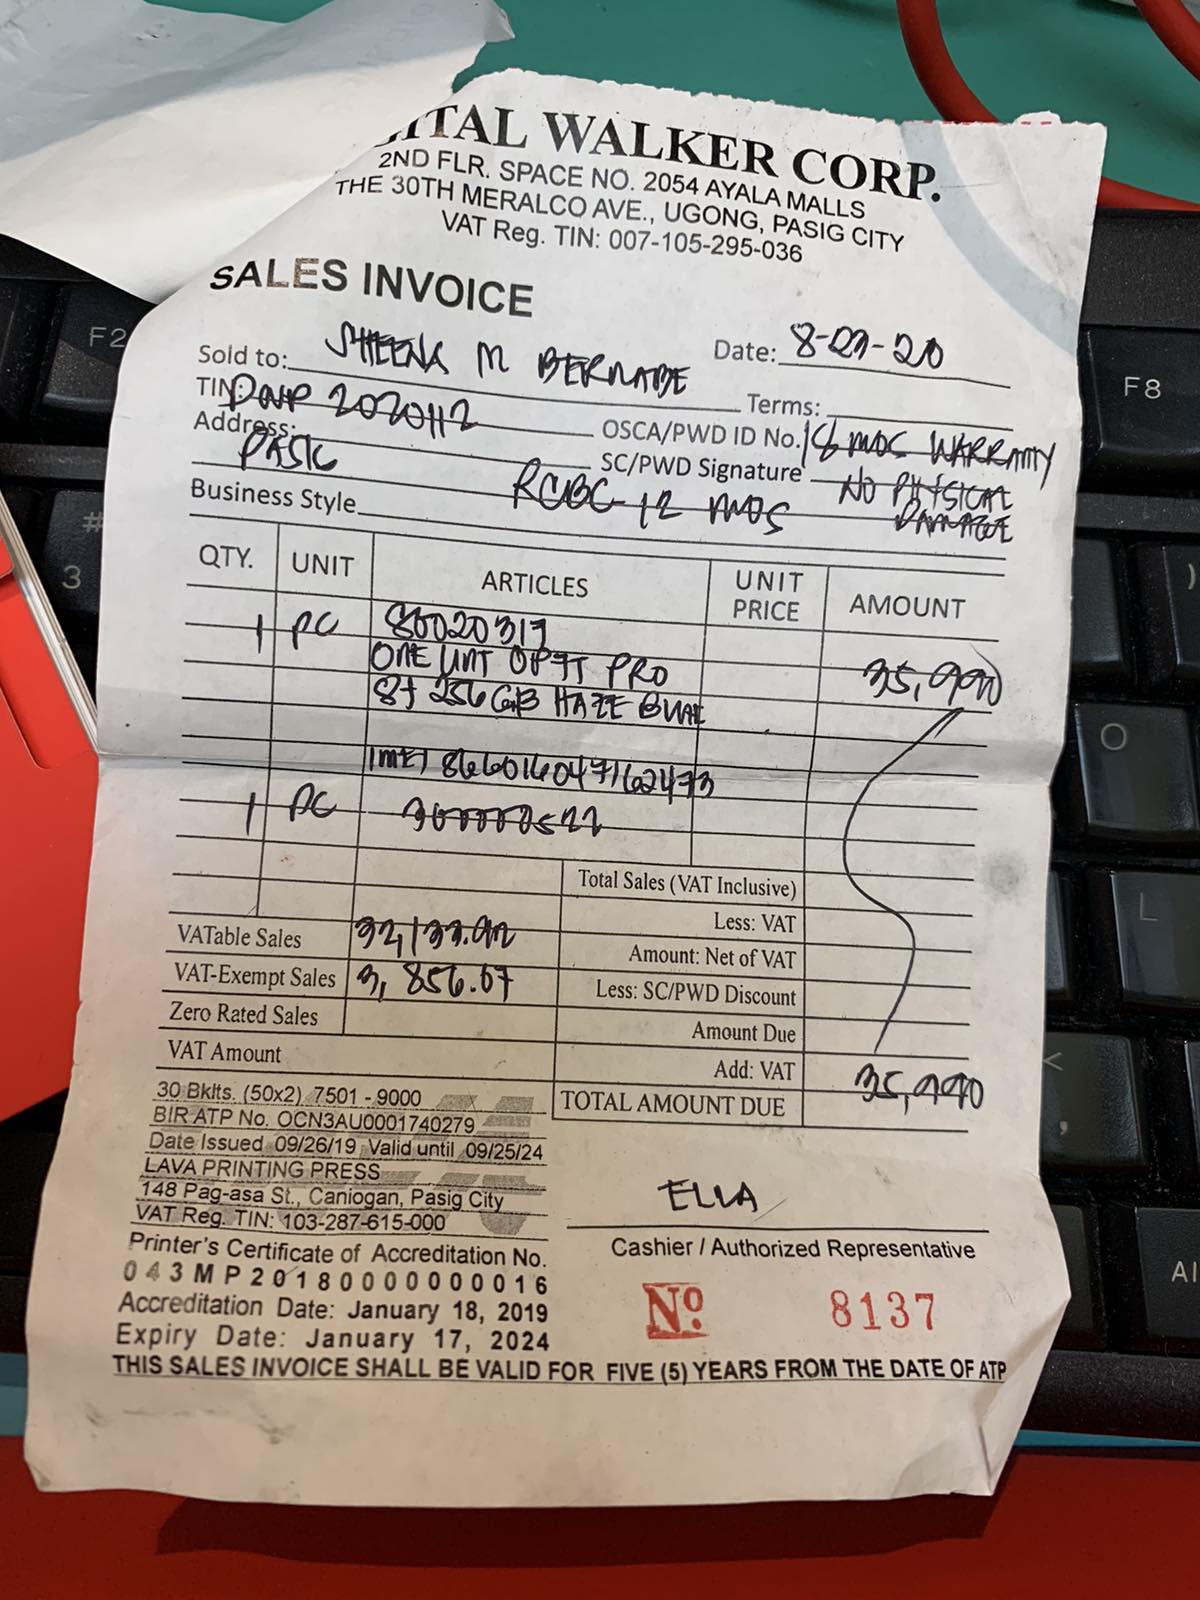 ITAL WALKER CORP.
2ND FLR. SPACE NO. 2054 AYALA MALLS
THE 30TH MERALCO AVE., UGONG, PASIG CITY
VAT Reg. TIN: 007-105-295-036
SALES INVOICE
Sold to: SHEENA M BERNABE Date:
TIN Terms:
Address: PASIG OSCA/PWD ID No. 18 MOS WARRANTY
SC/PWD Signature NO PHYSICAL
Business Style RCBC 12 MOS DAMAGE
QTY. UNIT ARTICLES UNIT PRICE AMOUNT
1 PC 35,990
ONE UNIT OP7T PRO
8+256GB HAZE BLUE
IMEI 866016047162473
1 PC
Total Sales (VAT Inclusive)
Less: VAT
VATable Sales Amount: Net of VAT
VAT-Exempt Sales 3,856.07 Less: SC/PWD Discount
Zero Rated Sales Amount Due
VAT Amount Add: VAT
TOTAL AMOUNT DUE 35,990
30 Bklts. (50x2) 7501 - 9000
BIR ATP No. OCN3AU0001740279
Date Issued 09/26/19 Valid until 09/25/24
LAVA PRINTING PRESS
148 Pag-asa St., Caniogan, Pasig City
VAT Reg. TIN: 103-287-615-000
Printer's Certificate of Accreditation No.
043MP20180000000016
Accreditation Date: January 18, 2019
Expiry Date: January 17, 2024
ELLA
Cashier / Authorized Representative
No. 8137
THIS SALES INVOICE SHALL BE VALID FOR FIVE (5) YEARS FROM THE DATE OF ATP
F2
#
3
F8
)
O
L
<
,